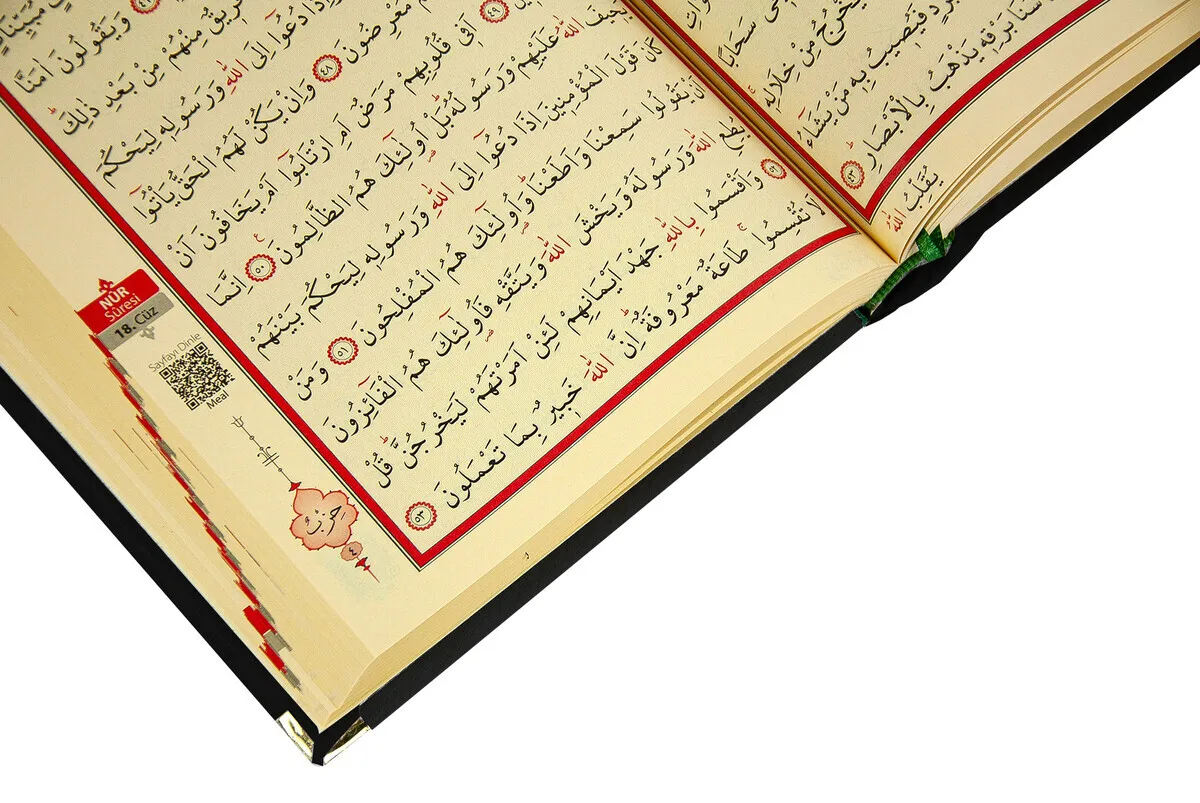 سَحَابًا
مِنْ خِلَالِهِ
فَيُصِيبُ بِهِ مَنْ يَشَٓاءُ
سَنَا بَرْقِهِ يَذْهَبُ بِالْاَبْصَارِ ٤٣
يُقَلِّبُ اللّٰهُ
وَيَقُولُونَ اٰمَنَّا
فَرِيقٌ مِنْهُمْ مِنْ بَعْدِ ذٰلِكَ
دُعُٓوا اِلَى اللّٰهِ وَرَسُولِهِ لِيَحْكُمَ
مُعْرِضُونَ ٤٨ وَاِنْ يَكُنْ لَهُمُ الْحَقُّ يَأْتُٓوا
٤٩ اَفِي قُلُوبِهِمْ مَرَضٌ اَمِ ارْتَابُٓوا اَمْ يَخَافُونَ اَنْ
يَحِيفَ اللّٰهُ عَلَيْهِمْ وَرَسُولُهُ بَلْ اُو۬لٰٓئِكَ هُمُ الظَّالِمُونَ ٥٠ اِنَّمَا
كَانَ قَوْلَ الْمُؤْمِنِينَ اِذَا دُعُٓوا اِلَى اللّٰهِ وَرَسُولِهِ لِيَحْكُمَ بَيْنَهُمْ
اَنْ يَقُولُوا سَمِعْنَا وَاَطَعْنَا وَاُو۬لٰٓئِكَ هُمُ الْمُفْلِحُونَ ٥١ وَمَنْ
يُطِعِ اللّٰهَ وَرَسُولَهُ وَيَخْشَ اللّٰهَ وَيَتَّقْهِ فَاُو۬لٰٓئِكَ هُمُ الْفَٓائِزُونَ
٥٢ وَاَقْسَمُوا بِاللّٰهِ جَهْدَ اَيْمَانِهِمْ لَئِنْ اَمَرْتَهُمْ لَيَخْرُجُنَّ قُلْ
لَا تُقْسِمُوا طَاعَةٌ مَعْرُوفَةٌ اِنَّ اللّٰهَ خَبِيرٌ بِمَا تَعْمَلُونَ ٥٣
NÛR
Sûresi
18. Cüz
Sayfayı Dinle
Meal
حِزْبٌ
٤